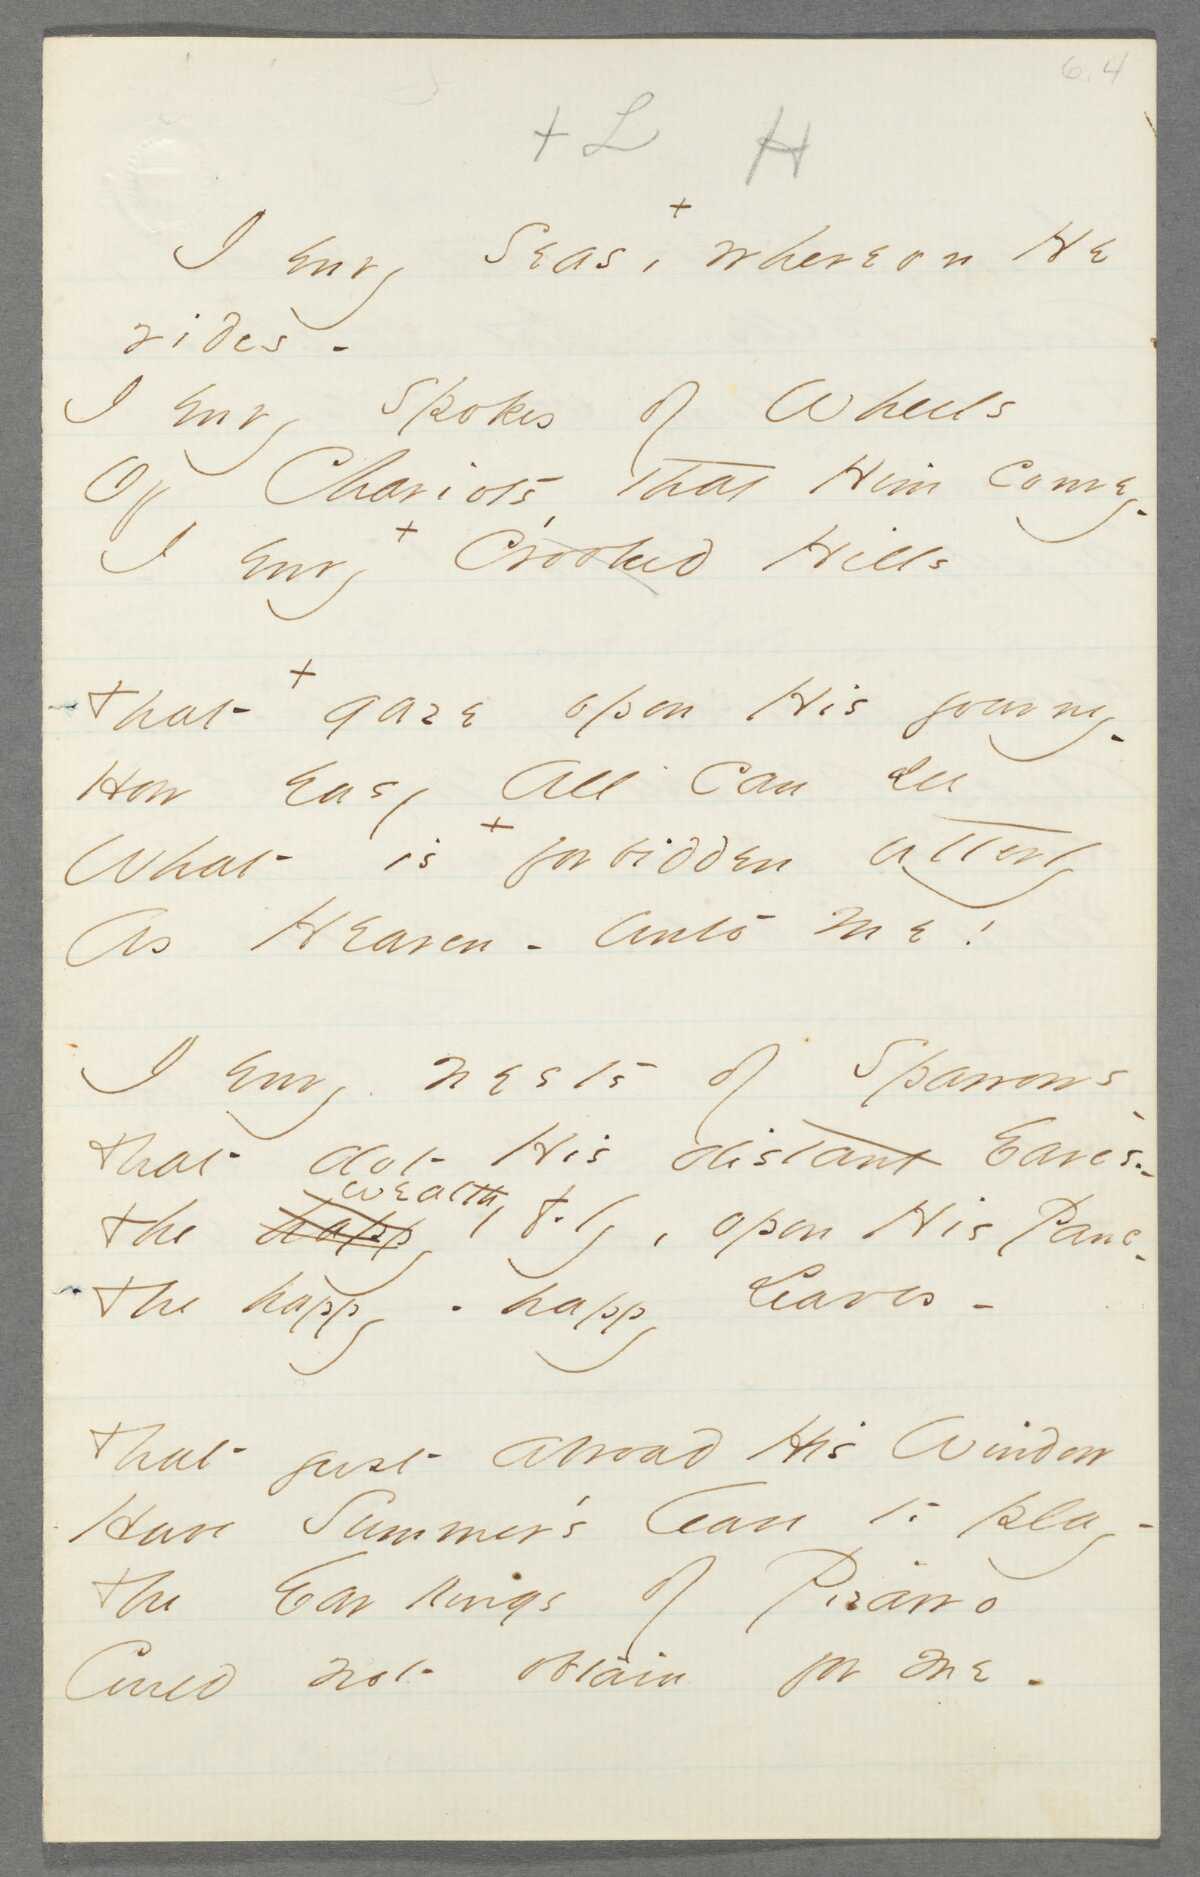 6.4
+ L H
+
I envy Seas, whereon He
rides -
I envy Spokes of Wheels
Of Chariots, that Him Convey -
+
I envy Crooked Hills
+
That gaze opon His journey -
How easy all can see
+
What is forbidden utterly
As Heaven - unto me!
I envy nests of Sparrows -
That dot His distant Eaves -
wealthy
The happy Fly, opon His Pane -
The happy - happy Leaves -
That just abroad His Window
Have Summer's leave to play -
The Ear Rings of Pizarro
Could not obtain for me -